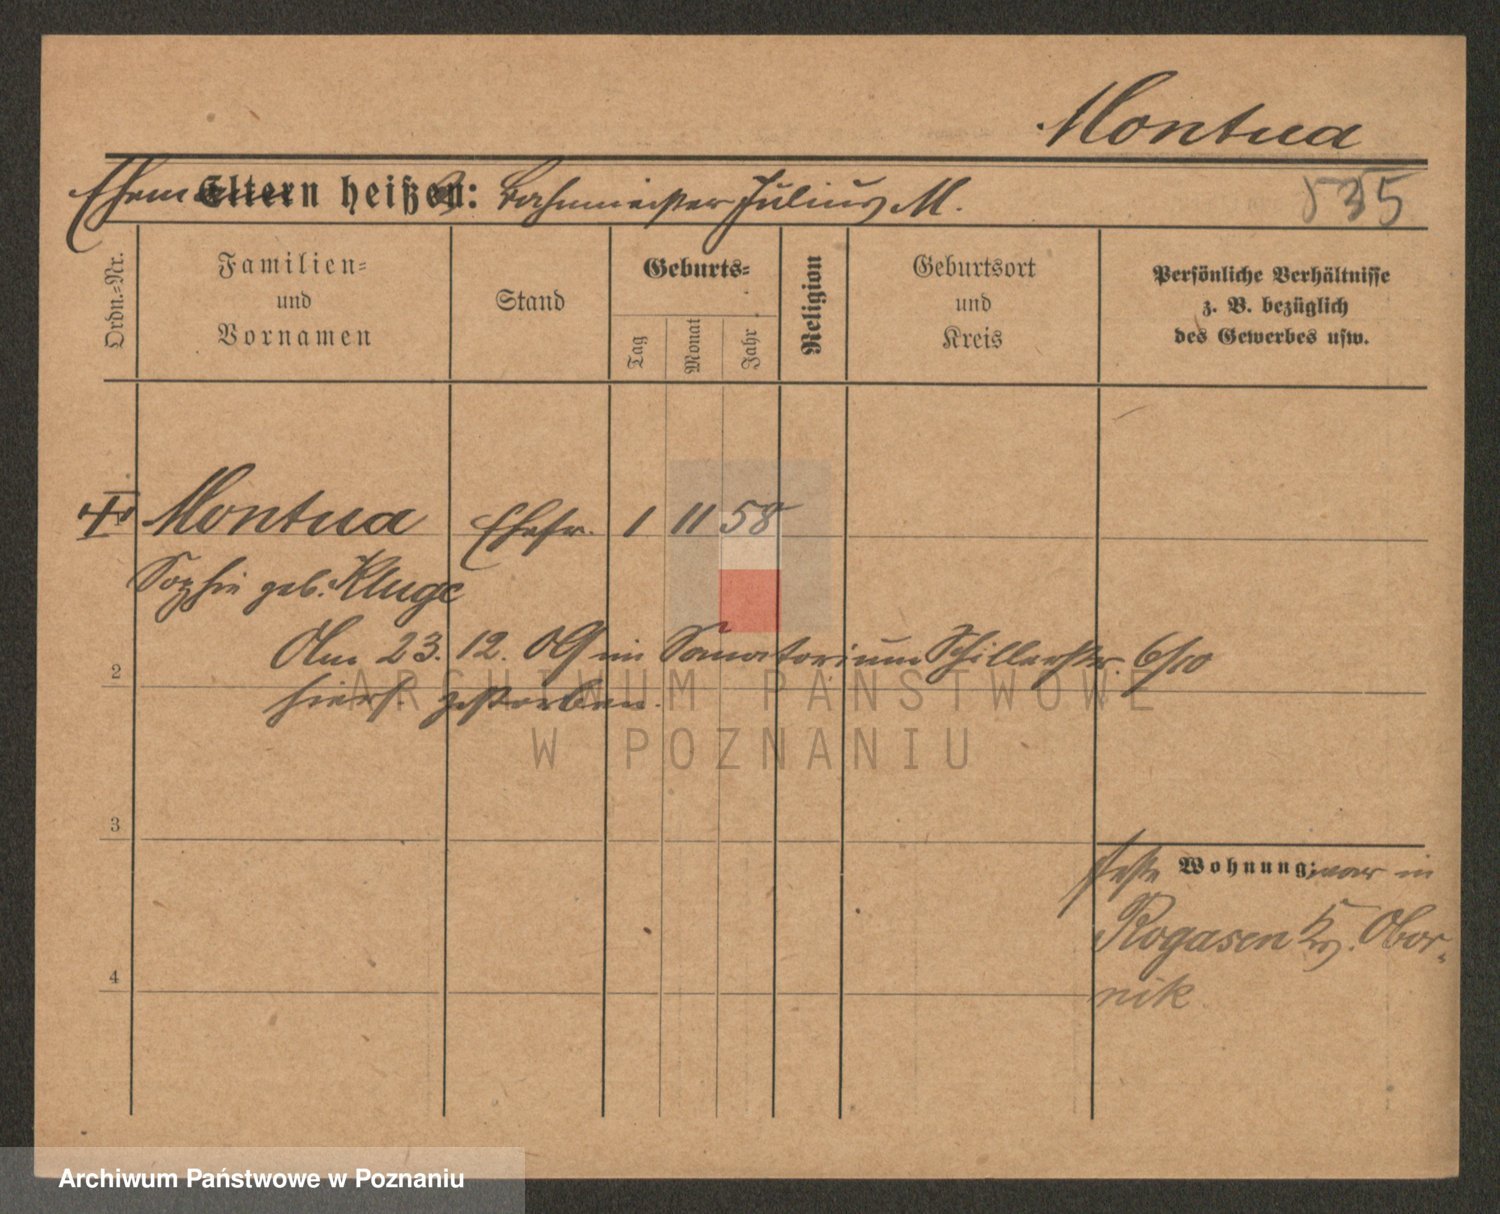 Montua
Eltern heißen: Bahnmeister Julius M.
535
Ordn.-Nr.
Familien-
und
Vornamen
Stand
Geburts-
Tag
Monat
Jahr
Religion
Geburtsort
und
Kreis
Persönliche Verhältnisse
z. B. bezüglich
des Gewerbes usw.
Montua Ehefr. 1 11 58
Sophie geb. Kluge
Am 23. 12. 09 im Sanatorium Schillerstr. 6/10
2
hiers. gestorben.
3
Wohnung: war in
Rogasen Kr. Obor-
4
nik
ARCHIWUM PAŃSTWOWE
W POZNANIU
Archiwum Państwowe w Poznaniu